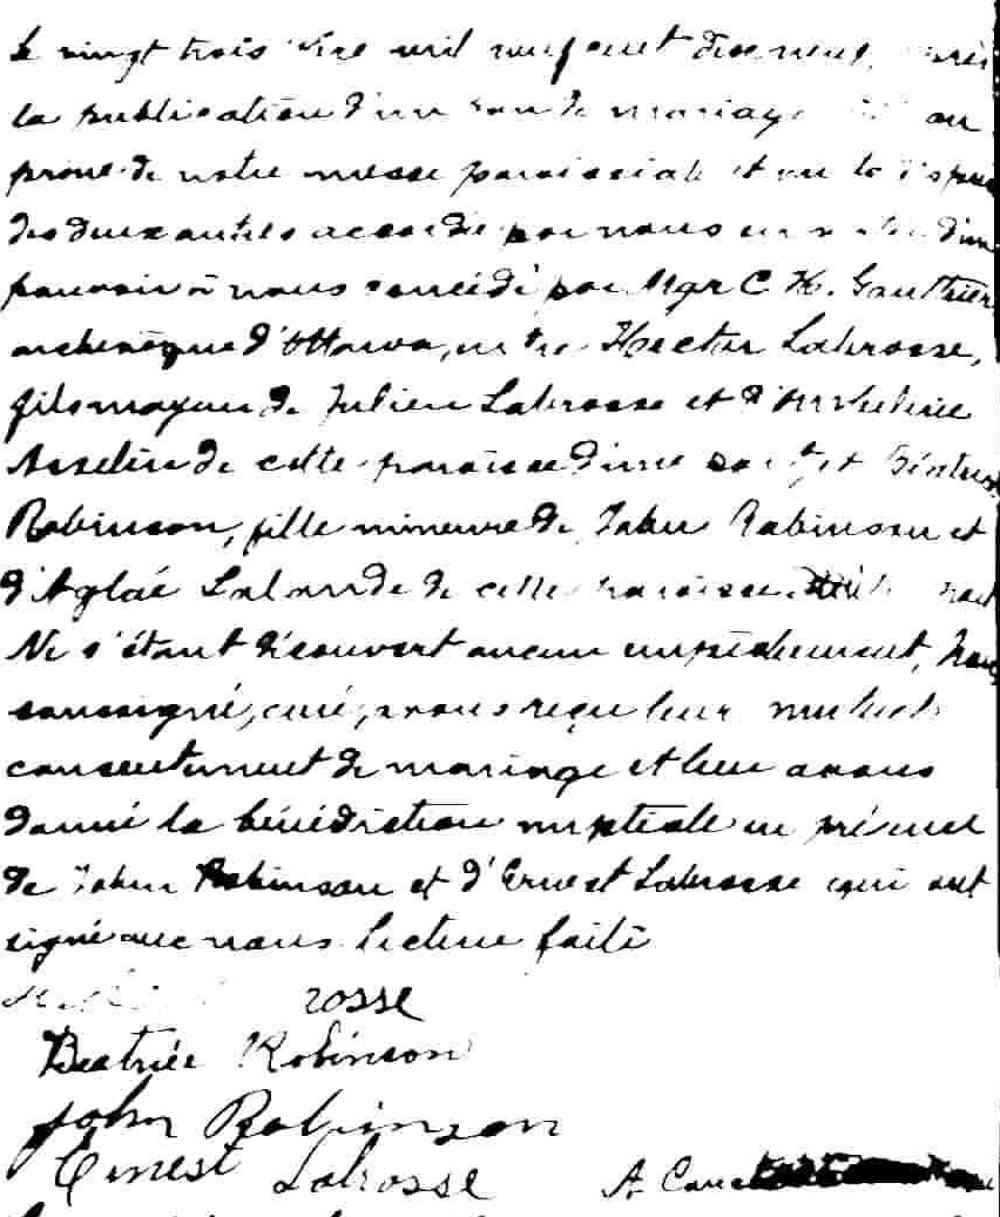 Le vingt trois mil neuf cent dix neuf, après
la publication d'un ban de mariage au
prone de notre messe paroissiale et vu la dispense
des deux autres accordée par nous en d'un
pouvoir à nous concédé par Mgr C. H. Gauthier
archevêque d'Ottawa, entre Hector Labrosse,
fils majeur de Julien Labrosse et
Asselin de cette paroisse d'une part et Béatrice
Robinson, fille mineure de John Robinson et
d'Aglaé Lalande de cette paroisse part
Ne s'étant découvert aucun empêchement, Nous
soussigné, curé, avons reçu leur mutuel
consentement de mariage et leur avons
donné la bénédiction nuptiale en présence
de John Robinson et d'Ernest Labrosse qui ont
signé avec nous. Lecture faite
rosse
Beatrice Robinson
John Robinson
Ernest Labrosse A.